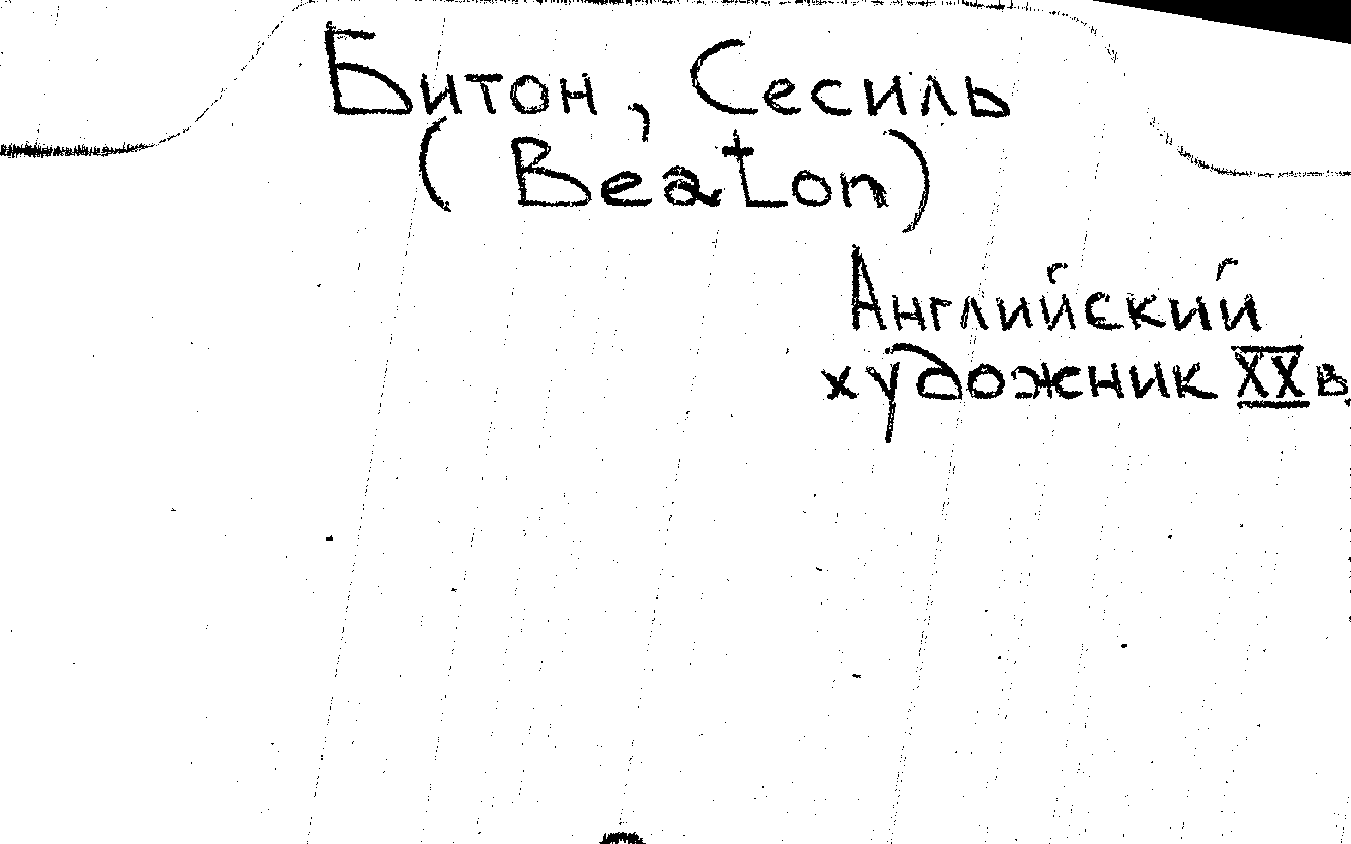 Битон, Сесиль
(Beaton)
Английский
художник XX в.